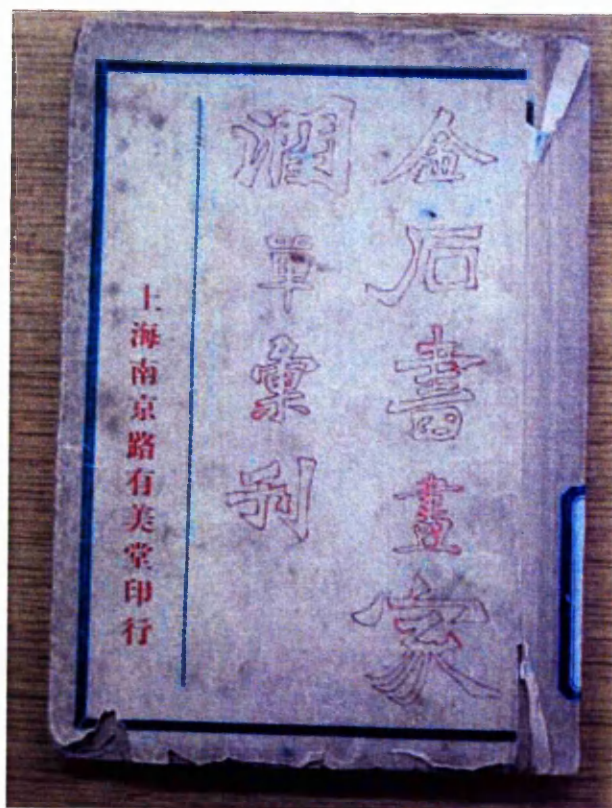 金石書畫家
潤單彙刋
上海南京路有美堂印行